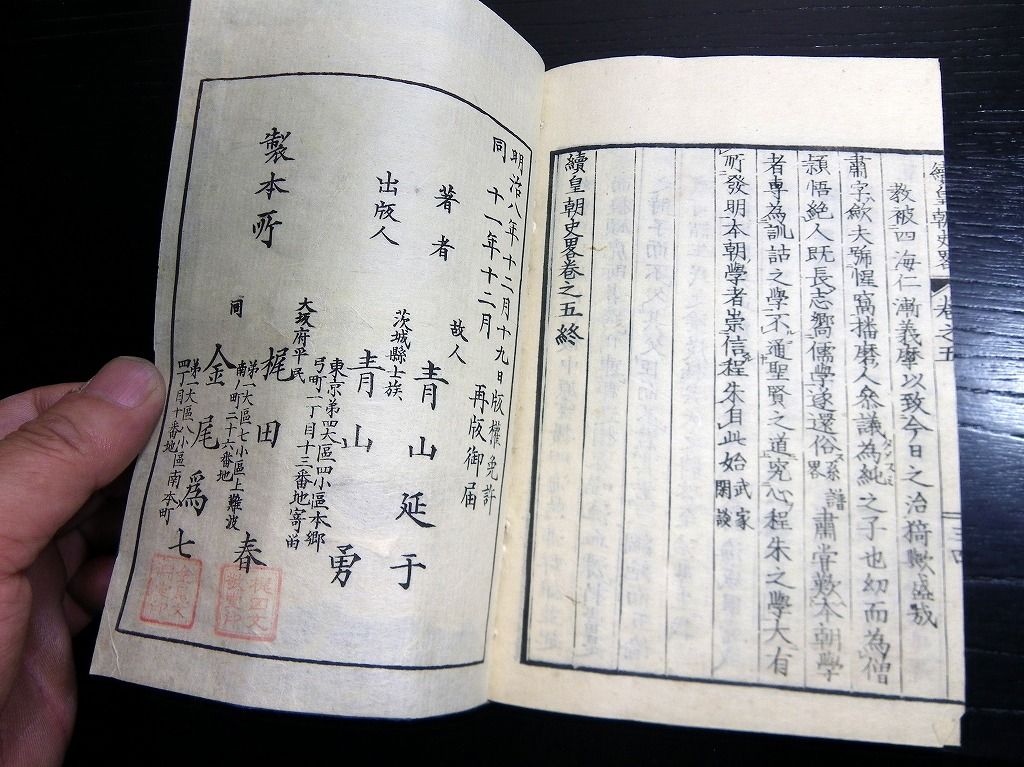 續皇朝史畧 卷之五
教被四海仁漸義摩以致今日之治猗歟盛哉
肅字歛夫號惺窩播磨人參議為純之子也幼而為僧
頴悟絶人既長志嚮儒學遂還俗系譜畧肅常歎本朝學
者專為訓詁之學不通聖賢之道究心程朱之學大有
所發明本朝學者崇信程朱自此始武家閑談
續皇朝史畧卷之五終
明治八年十二月十九日版權免許
同十一年十二月再版御届
著者 故人 青山延于
茨城縣士族
出版人 青山勇
東京第四大區四小區本郷
弓町一丁目十三番地寄畄
大坂府平民
製本所 梶田 春
第一大區七小區上難波
南ノ町二十六番地
仝 金尾為七
第一大區八小區南本町
四丁目十番地